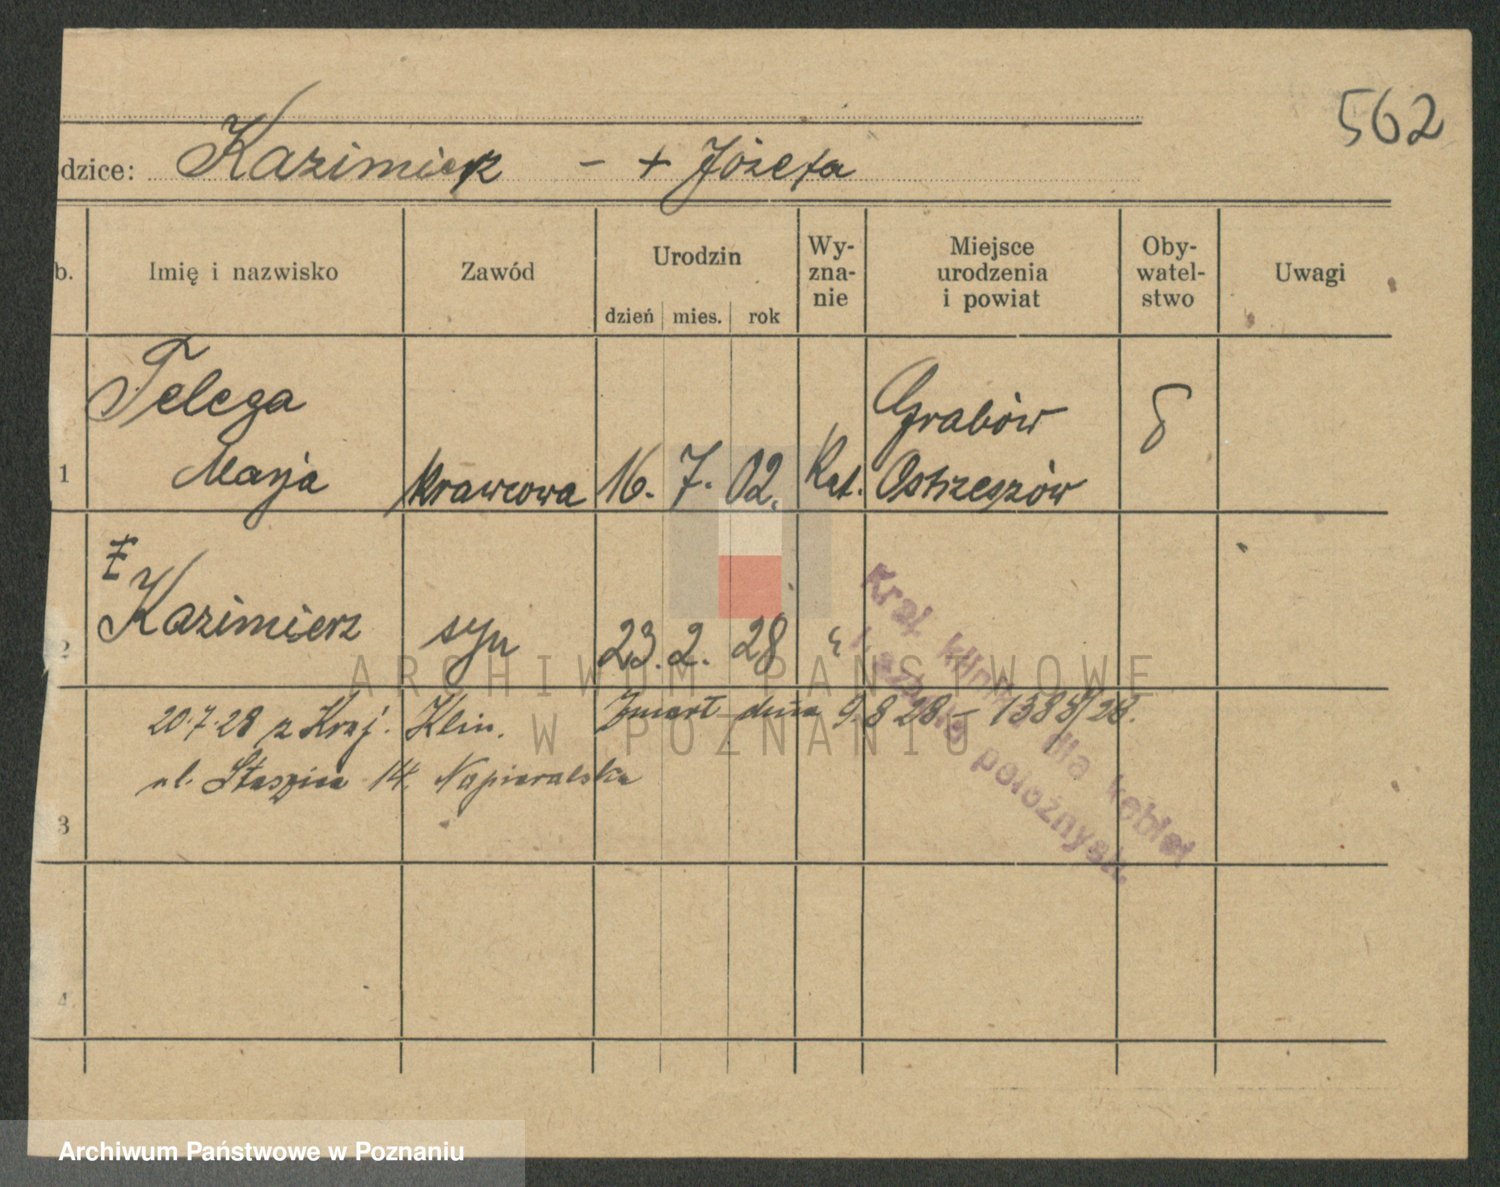 562
dzice: Kazimierz - + Józefa
b.
Imię i nazwisko
Zawód
Urodzin
dzień
mies.
rok
Wy-
zna-
nie
Miejsce
urodzenia
i powiat
Oby-
watel-
stwo
Uwagi
1
Telega
Marja
krawcowa
16. 7. 02.
Kat.
Grabów
Ostrzeszów
2
Kazimierz
syn
23. 2. 28
"
20.7.28 z Kraj. Klin. Zmarł dnia 9.8 28 - 1388/28.
ul. Staszica 14. Napieralska
Kraj. klinika dla kobiet
położnych.
3
4
ARCHIWUM PAŃSTWOWE
W POZNANIU
Archiwum Państwowe w Poznaniu